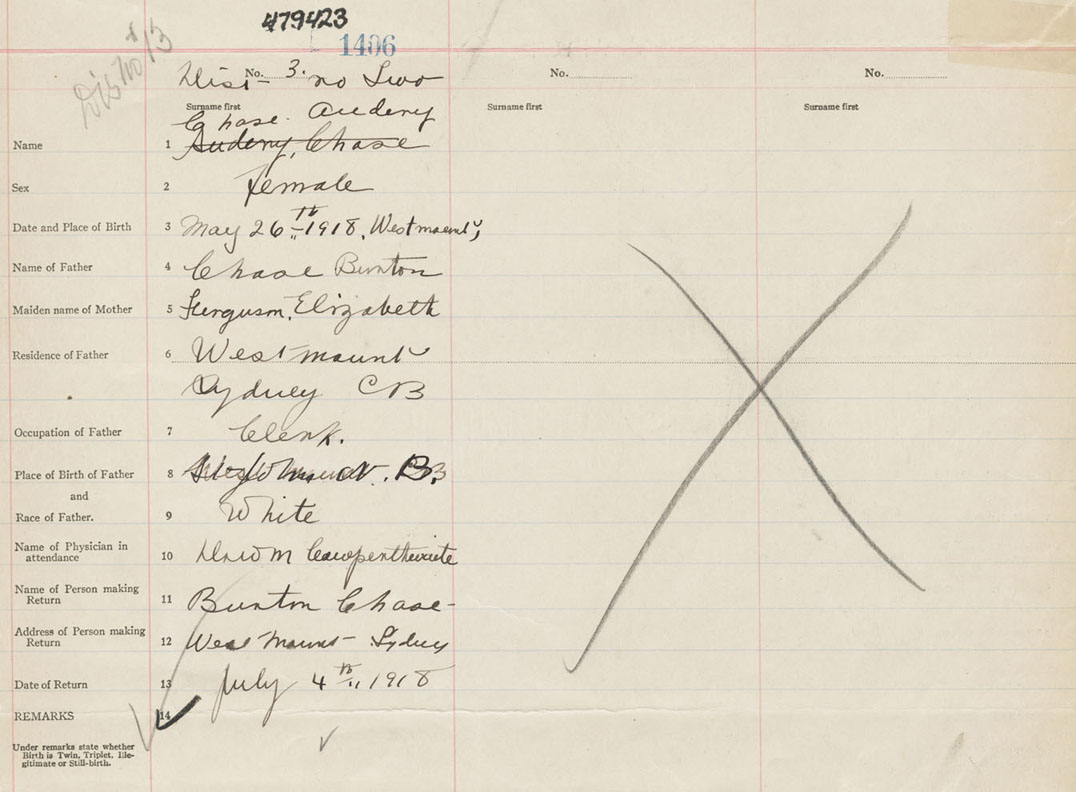 479423
1406
Dis No 13
Dist No. 3. no Two No. No.
Surname first Surname first Surname first
Chase. Auderey
Name 1 Auderey, Chase
Sex 2 female
Date and Place of Birth 3 May 26th 1918, Westmount,
Name of Father 4 Chase Burton
Maiden name of Mother 5 Ferguson, Elizabeth
Residence of Father 6 Westmount
Sydney CB
Occupation of Father 7 Clerk.
Place of Birth of Father 8
and
Race of Father. 9 White
Name of Physician in
attendance 10
Name of Person making
Return 11 Burton Chase-
Address of Person making
Return 12 West mount - Sydney
Date of Return 13 July 4th 1918
REMARKS 14
Under remarks state whether
Birth is Twin, Triplet, Ille-
gitimate or Still-birth.